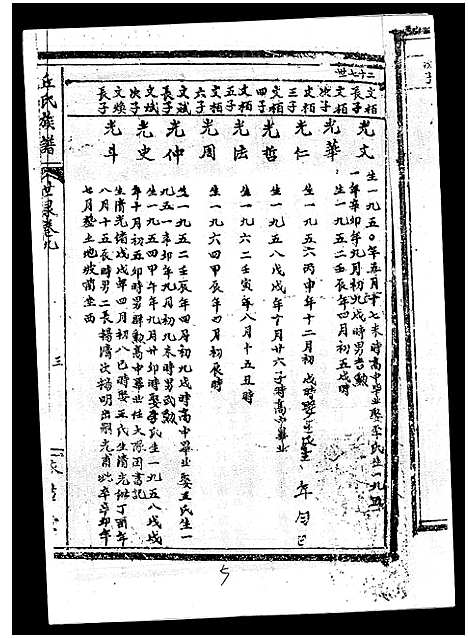 二十七世
文柏長子
光文
生一九五〇年五月十七未時高中畢業娶李氏生一九五
一年辛卯年九月初九戌時男吉勳
文柏次子
光華
生一九五二壬辰年四月初五戌時
文柏三子
光仁
生一九五六丙申年十二月初 戌時娶王氏生 年 月
文柏四子
光哲
生一九五八戊戌年十月廿六子時高中畢業
文柏五子
光法
生一九六二壬寅年八月十五丑時
文柏六子
光周
生一九六四甲辰年四月初 辰時
文斌長子
光仲
生一九五二壬辰年四月初九戌時高中畢業娶王氏生一
九五一辛卯年九月初九未時男武勳
文斌次子
光史
生一九五四甲午年九月廿卯時娶李氏生一九五八戊戌
年十月初五卯時男群勳高中畢業任大隊團書記
文煥長子
光斗
生清光緒戊戌年四月初八巳時娶王氏生清光緒丁酉年
八月十五辰時男二長揚濟次揚明出嗣光甫 卒辛卯年
七月塟土地坡簡坐西
丘氏族譜
世系卷九
三
5